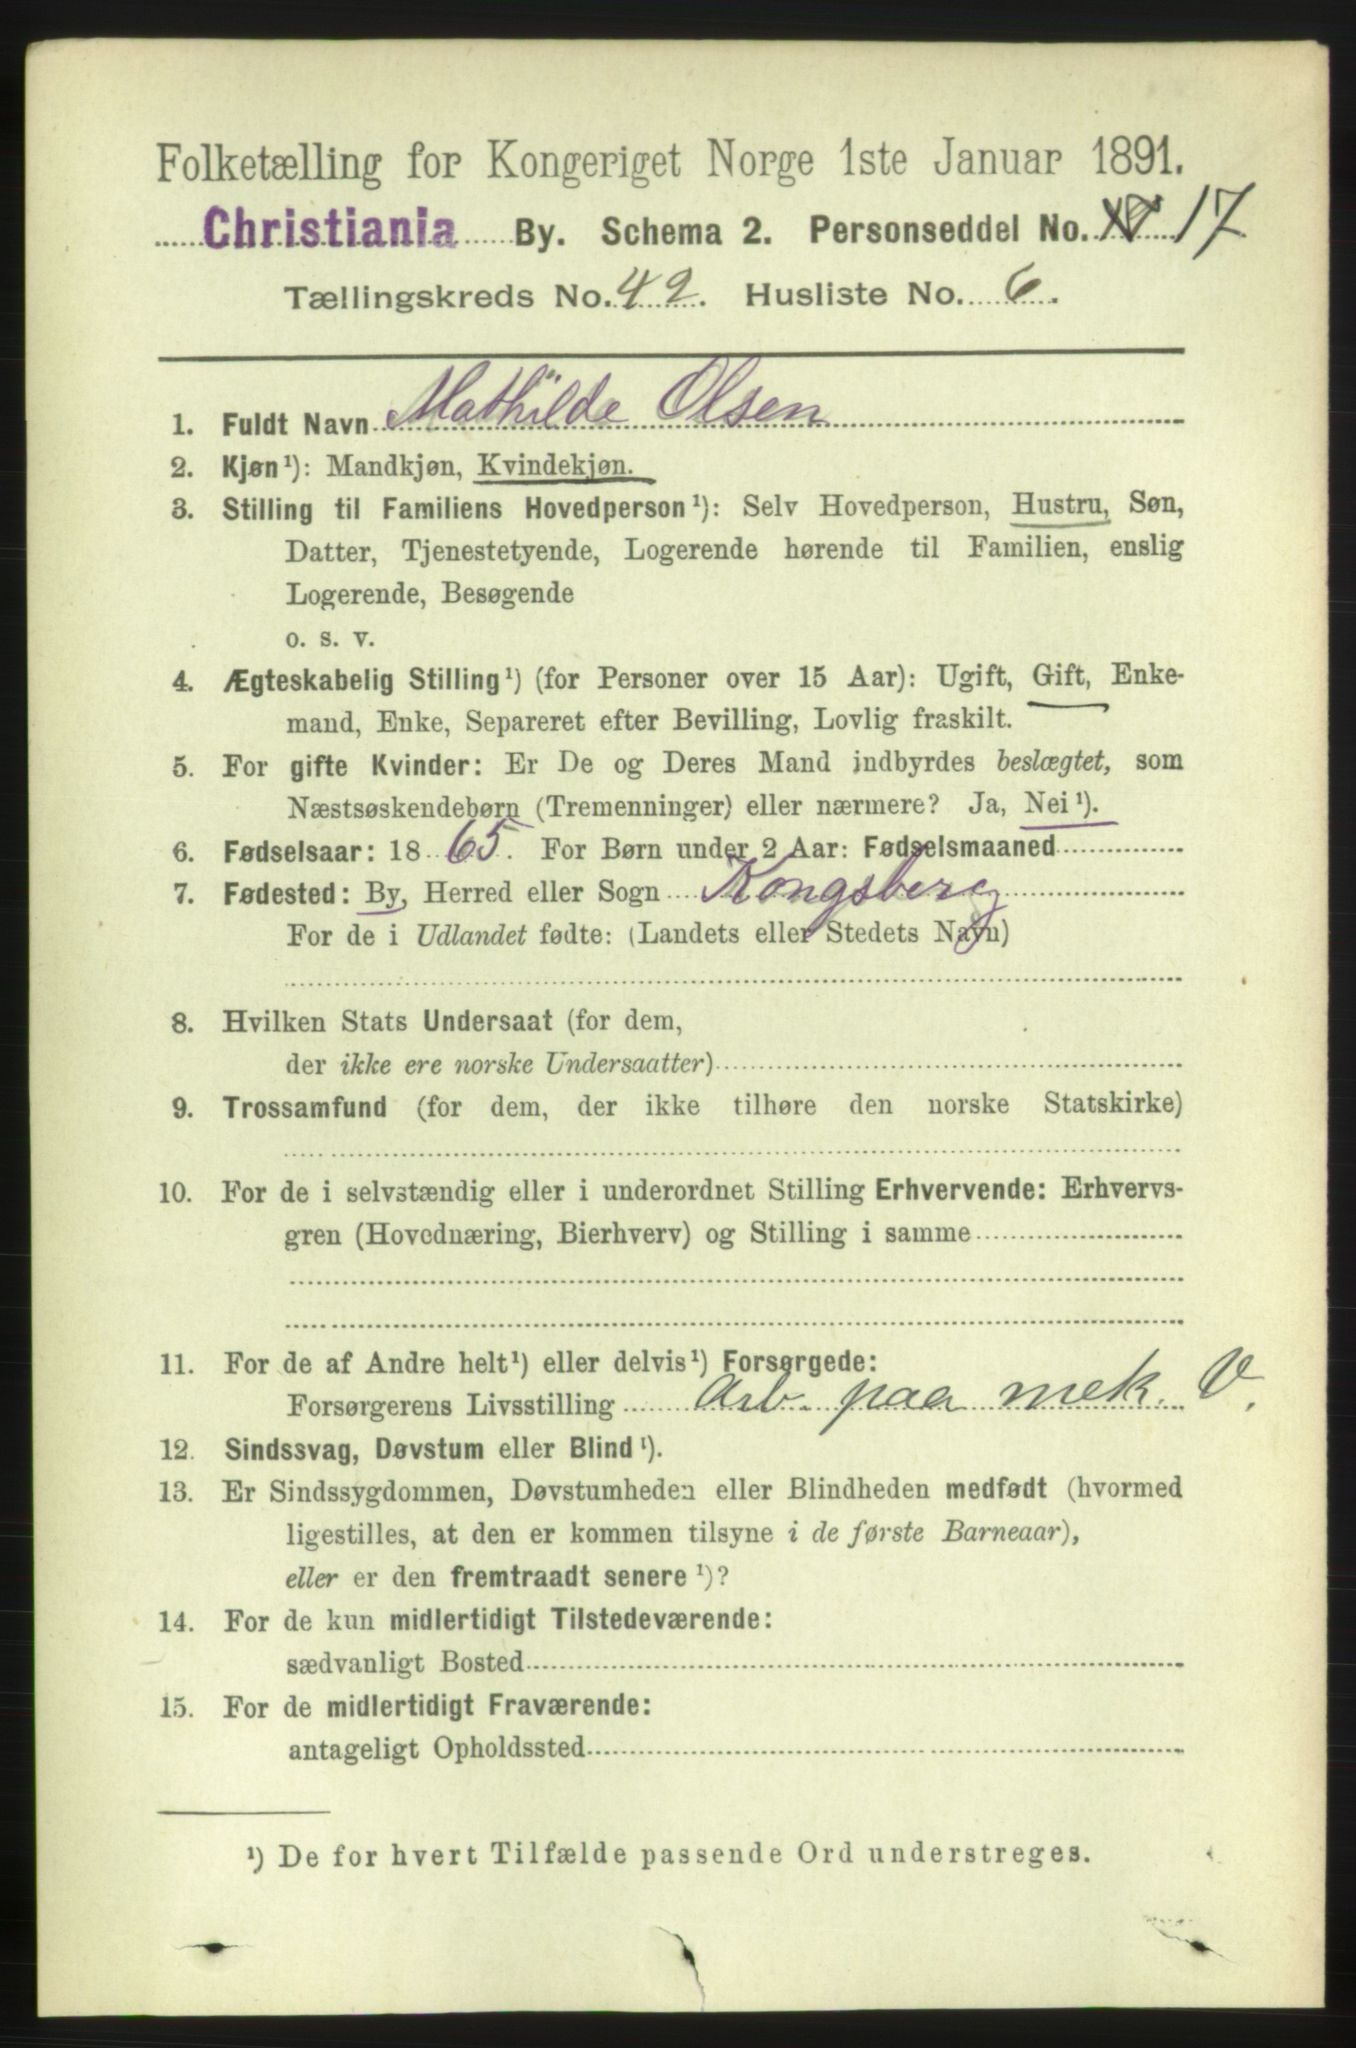 Folketælling for Kongeriget Norge 1ste Januar 1891.
Christiania By. Schema 2. Personseddel No. 17
Tællingskreds No. 42. Husliste No. 6.
1. Fuldt Navn Mathilde Olsen
2. Kjøn¹): Mandkjøn, Kvindekjøn.
3. Stilling til Familiens Hovedperson¹): Selv Hovedperson, Hustru, Søn,
Datter, Tjenestetyende, Logerende hørende til Familien, enslig
Logerende, Besøgende
o. s. v.
4. Ægteskabelig Stilling¹) (for Personer over 15 Aar): Ugift, Gift, Enke-
mand, Enke, Separeret efter Bevilling, Lovlig fraskilt.
5. For gifte Kvinder: Er De og Deres Mand indbyrdes beslægtet, som
Næstsøskendebørn (Tremenninger) eller nærmere? Ja, Nei¹).
6. Fødselsaar: 1865. For Børn under 2 Aar: Fødselsmaaned
7. Fødested: By, Herred eller Sogn Kongsberg
For de i Udlandet fødte: (Landets eller Stedets Navn)
8. Hvilken Stats Undersaat (for dem,
der ikke ere norske Undersaatter)
9. Trossamfund (for dem, der ikke tilhøre den norske Statskirke)
10. For de i selvstændig eller i underordnet Stilling Erhvervende: Erhvervs-
gren (Hovednæring, Bierhverv) og Stilling i samme
11. For de af Andre helt¹) eller delvis¹) Forsørgede:
Forsørgerens Livsstilling Arb. paa mek. V.
12. Sindssvag, Døvstum eller Blind¹).
13. Er Sindssygdommen, Døvstumheden eller Blindheden medfødt (hvormed
ligestilles, at den er kommen tilsyne i de første Barneaar),
eller er den fremtraadt senere¹)?
14. For de kun midlertidigt Tilstedeværende:
sædvanligt Bosted
15. For de midlertidigt Fraværende:
antageligt Opholdssted
¹) De for hvert Tilfælde passende Ord understreges.